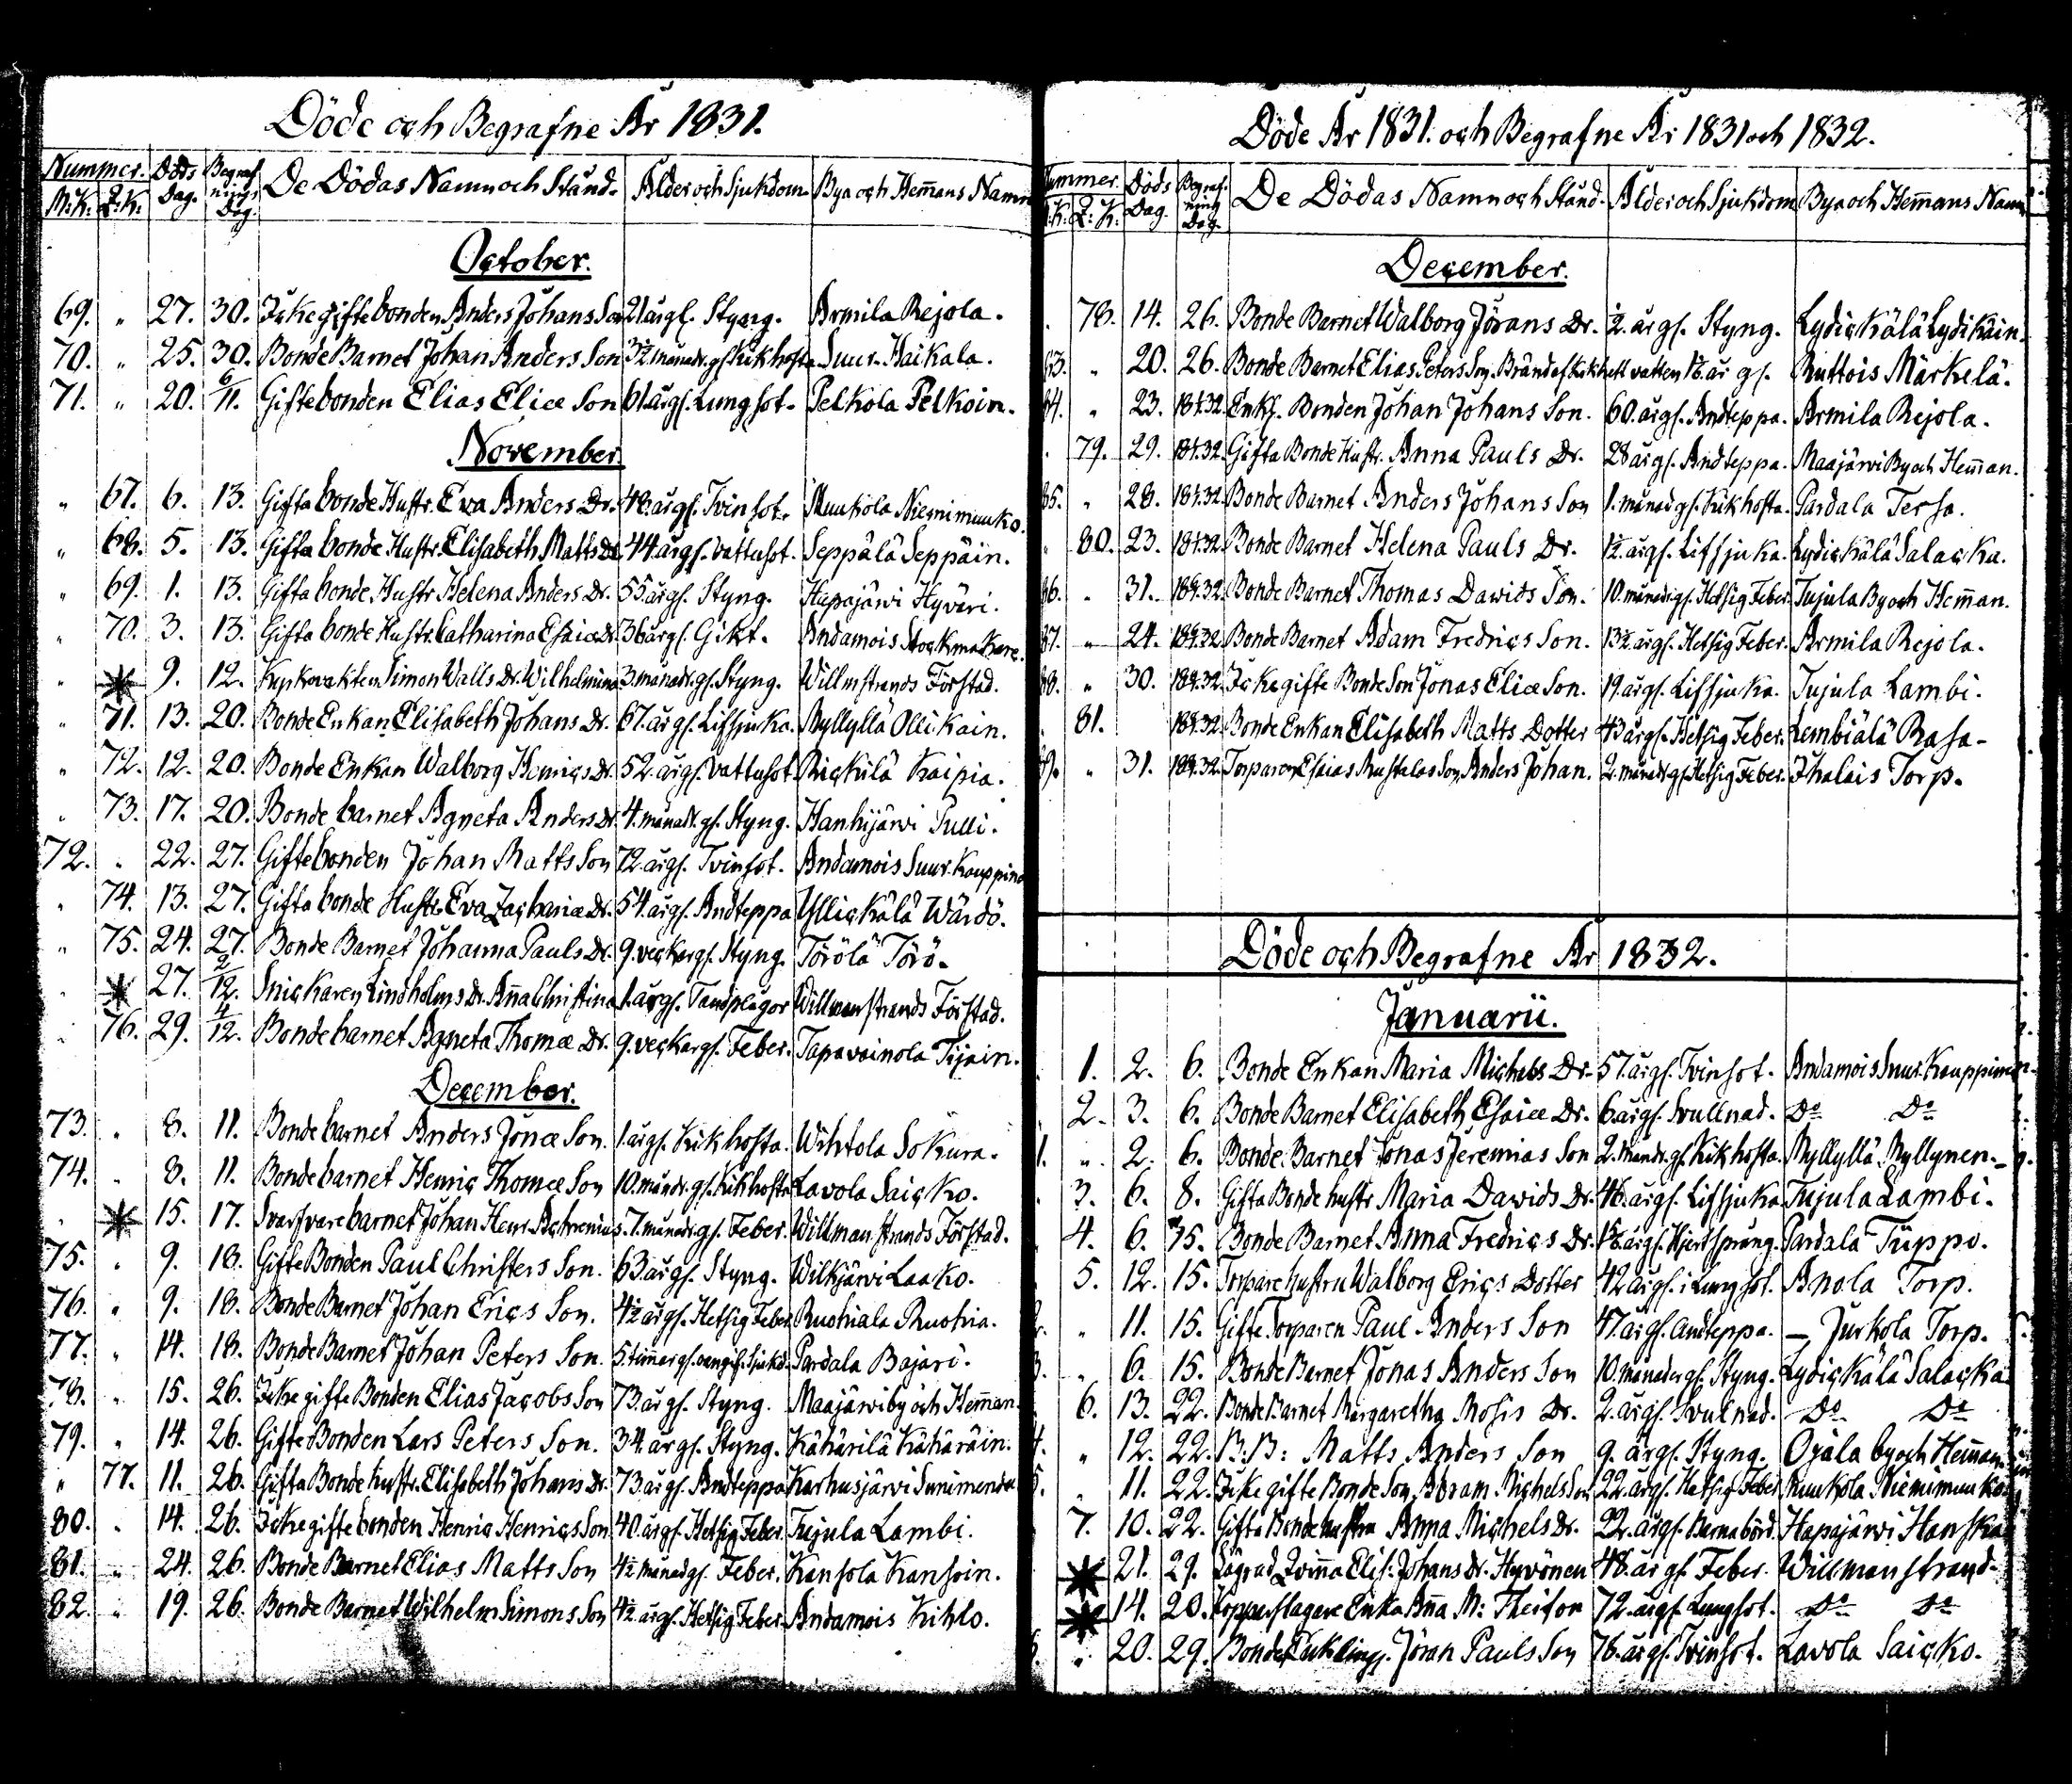 Döde och Begrafne År 1831.
Nummer. Döds Dag. Begrafnings Dag. De Dödas Namn och Stånd. Ålder och Sjukdom. Bya och Hem̄ans Namn
M:K: Q:K:
October.
69. " 27. 30. Icke gifte bonden Anders Johans Son 21 årgl. Styng. Armila Rejola.
70. " 25. 30. Bonde Barnet Johan Anders Son 3½ månadr. gl. Kikhosta Suur-Haikala.
71. " 20. 6/11. Gifte bonden Elias Eliæ Son 61. årgl. Lungsot. Pelkola Pelkoin.
November.
" 67. 6. 13. Gifta bonde Hustr. Eva Anders Dr. 48. årgl. Tvinsot. Muukola Niemimuuko.
" 68. 5. 13. Gifta bonde Hustr. Elisabeth Matts Dr. 44. årgl. Vattusot. Seppälä Seppäin.
" 69. 1. 13. Gifta bonde Hustr Helena Anders Dr. 55 årgl. Styng. Hapajärwi Hyväri.
" 70. 3. 13. Gifta bonde Hustr. Catharina Esaiæ Dr. 36 årgl. Gikt. Andamois
" 9. 12. Simon Walls Dr. Wilhelmina 3. månadr. gl. Styng. Willmstrands Förstad.
" 71. 13. 20. Bonde Enkan Elisabeth Johans Dr. 67. årgl. Lifsjuka. Myllyllä Ollikain.
" 72. 12. 20. Bonde Enkan Walborg Henrics Dr. 52. årgl. Vattusot Rickilä Kaipia.
" 73. 17. 20. Bonde barnet Agneta Anders Dr. 4. månadr. gl. Styng. Hanhijärwi Pulli.
72. " 22. 27. Gifte bonden Johan Matts Son 72. årgl. Tvinsot. Andamois Suur Kauppine
" 74. 13. 27. Gifta bonde Hustr. Eva Zachariæ Dr. 54. årgl. Andteppa Yllickälä Wärdö.
" 75. 24. 27. Bonde Barnet Johanna Pauls Dr. 9. veckar gl. Styng. Törölä Törö.
" 27. 2/12. Snickaren Lindholms Dr. An̄a Christina 1. årgl. Tandplågor Willmanstrands Förstad.
" 76. 29. 4/12. Bonde barnet Agneta Thomæ Dr. 9. veckar gl. Feber. Tapavainola Tijain.
December.
73. " 8. 11. Bonde barnet Anders Jonæ Son. 1. årgl. Kikhosta. Wihtola Sokura.
74. " 8. 11. Bonde barnet Henric Thomæ Son 10. månadr. gl. Kikhosta Lavola Saicko.
" 15. 17. Svarfvare barnet Johan Henr. 7. månadr. gl. Feber. Willmanstrands Förstad.
75. " 9. 18. Gifte Bonden Paul Christers Son. 63. årgl. Styng. Wilkjärwi Laako.
76. " 9. 18. Bonde Barnet Johan Erics Son. 4½ årgl. Hetsig Feber Ruohiala Ruohia.
77. " 14. 18. Bonde Barnet Johan Peters Son. 5. tim̄ar gl. Pardala Bajari.
78. " 15. 26. Icke gifte Bonden Elias Jacobs Son 73. årgl. Styng. Maajärwi by och Hem̄an.
79. " 14. 26. Gifte Bonden Lars Peters Son. 34. årgl. Styng. Kähärilä Kähäräin.
" 77. 11. 26. Gifta Bonde hustr. Elisabeth Johans Dr. 73. årgl. Andteppa Karhusjärwi
80. " 14. 26. Icke gifte bonden Henric Henrics Son 40. årgl. Hetsig Feber. Tujula Lambi.
81. " 24. 26. Bonde Barnet Elias Matts Son 4½ månad gl. Feber. Kansola Kansoin.
82. " 19. 26. Bonde Barnet Wilhelm Simons Son 4½ årgl. Hetsig Feber Andamois Kihlo.
Döde År 1831. och Begrafne År 1831 och 1832.
Nummer. Döds Dag. Begrafning Dag. De Dödas Namn och Stånd. Ålder och Sjukdom Bya och Hem̄ans Namn
K: Q: K:
December.
78. 14. 26. Bonde Barnet Walborg Jörans Dr. ½. årgl. Styng. Lydickälä Lydikäin.
83. " 20. 26. Bonde Barnet Elias Peters Son. Bränd af kokhett vatten 1½. år gl. Ruttois Märkelä.
84. " 23. Enkl. Bonden Johan Johans Son. 60. årgl. Andteppa. Armila Rejola.
79. 29. Gifta Bonde Hustr. Anna Pauls Dr. 28 årgl. Andteppa. Maajärwi By och Hem̄an.
85. " 28. Bonde Barnet Anders Johans Son 1. månad gl. Kikhosta. Pardala Tersa.
80. 23. Bonde Barnet Helena Pauls Dr. 1½ årgl. Lifsjuka. Lydickälä Salacka.
86. " 31. Bonde Barnet Thomas Dawids Son. 10. månadr. gl. Hetsig Feber. Tujula By och Hem̄an.
87. " 24. Bonde Barnet Adam Fredrics Son. 13½. årgl. Hetsig Feber. Armila Rejola.
88. " 30. Icke gifte Bonde Son Jonas Eliæ Son. 19. årgl. Lifsjuka. Tujula Lambi.
81. Bonde Enkan Elisabeth Matts Dotter 43 årgl. Hetsig Feber. Lembiälä Rasa.
89. " 31. Torparen Esaias Son Anders Johan. 2. månadr. gl. Hetsig Feber. Ihalais Torp.
Döde och Begrafne År 1832.
Januarii.
1. 2. 6. Bonde Enkan Maria Michels Dr. 57. årgl. Tvinsot. Andamois Suur Kauppinen.
2. 3. 6. Bonde Barnet Elisabeth Esaiæ Dr. 6. årgl. Svullnad. Do Do
1. " 2. 6. Bonde Barnet Jonas Jeremias Son 2. månadr. gl. Kikhosta. Myllyllä Myllynen.
3. 6. 8. Gifta Bonde hustr Maria Dawids Dr. 46. årgl. Lifsjuka Tujula Lambi.
4. 6. 15. Bonde Barnet Anna Fredrics Dr. 1½. årgl. Hjertsprång. Pardala Tuppo.
5. 12. 15. Torpare hustru Walborg Erics Dotter 42 årgl. i Lungsot. Anola Torp.
2. " 11. 15. Gifte Torparen Paul Anders Son 47. årgl. Andteppa. — Jurkola Torp.
3. " 6. 15. Bonde Barnet Jonas Anders Son 10. månader gl. Styng. Lydickälä Salacka
6. 13. 22. Bonde Barnet Margaretha Mosis Dr. 2. årgl. Svulnad. Do Do
4. " 12. 22. B: B: Matts Anders Son 9. årgl. Styng. Ojala by och Hem̄an
5. " 11. 22. Icke gifte Bonde Son Abram Michels Son 22. årgl. Hetsig Feber Muukola Niemimuuko
7. 10. 22. Gifta Bonde hustru Anna Michels Dr. 22. årgl. Barnsbörd. Hapajärwi Hanska
21. 29. Qvin̄a Elis: Johans Dr. Hyvönen 48. årgl. Feber. Willmanstrand.
14. 20. Kopparslagare Enka An̄a M: Theifon 72. årgl. Lungsot. Do Do
6. " 20. 29. Bonde Enkling. Jöran Pauls Son 76. årgl. Tvinsot. Lavola Saicko.